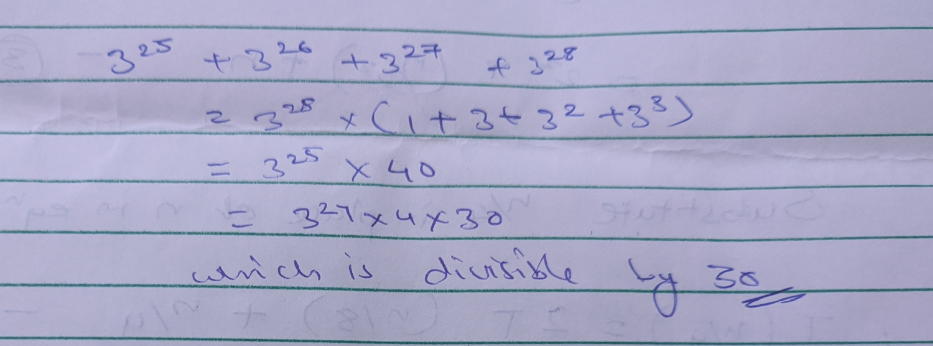 3²⁵ + 3²⁶ + 3²⁷ + 3²⁸
= 3²⁵ × (1 + 3 + 3² + 3³)
= 3²⁵ × 40
= 3²⁷ × 4 × 30
which is divisible by 30